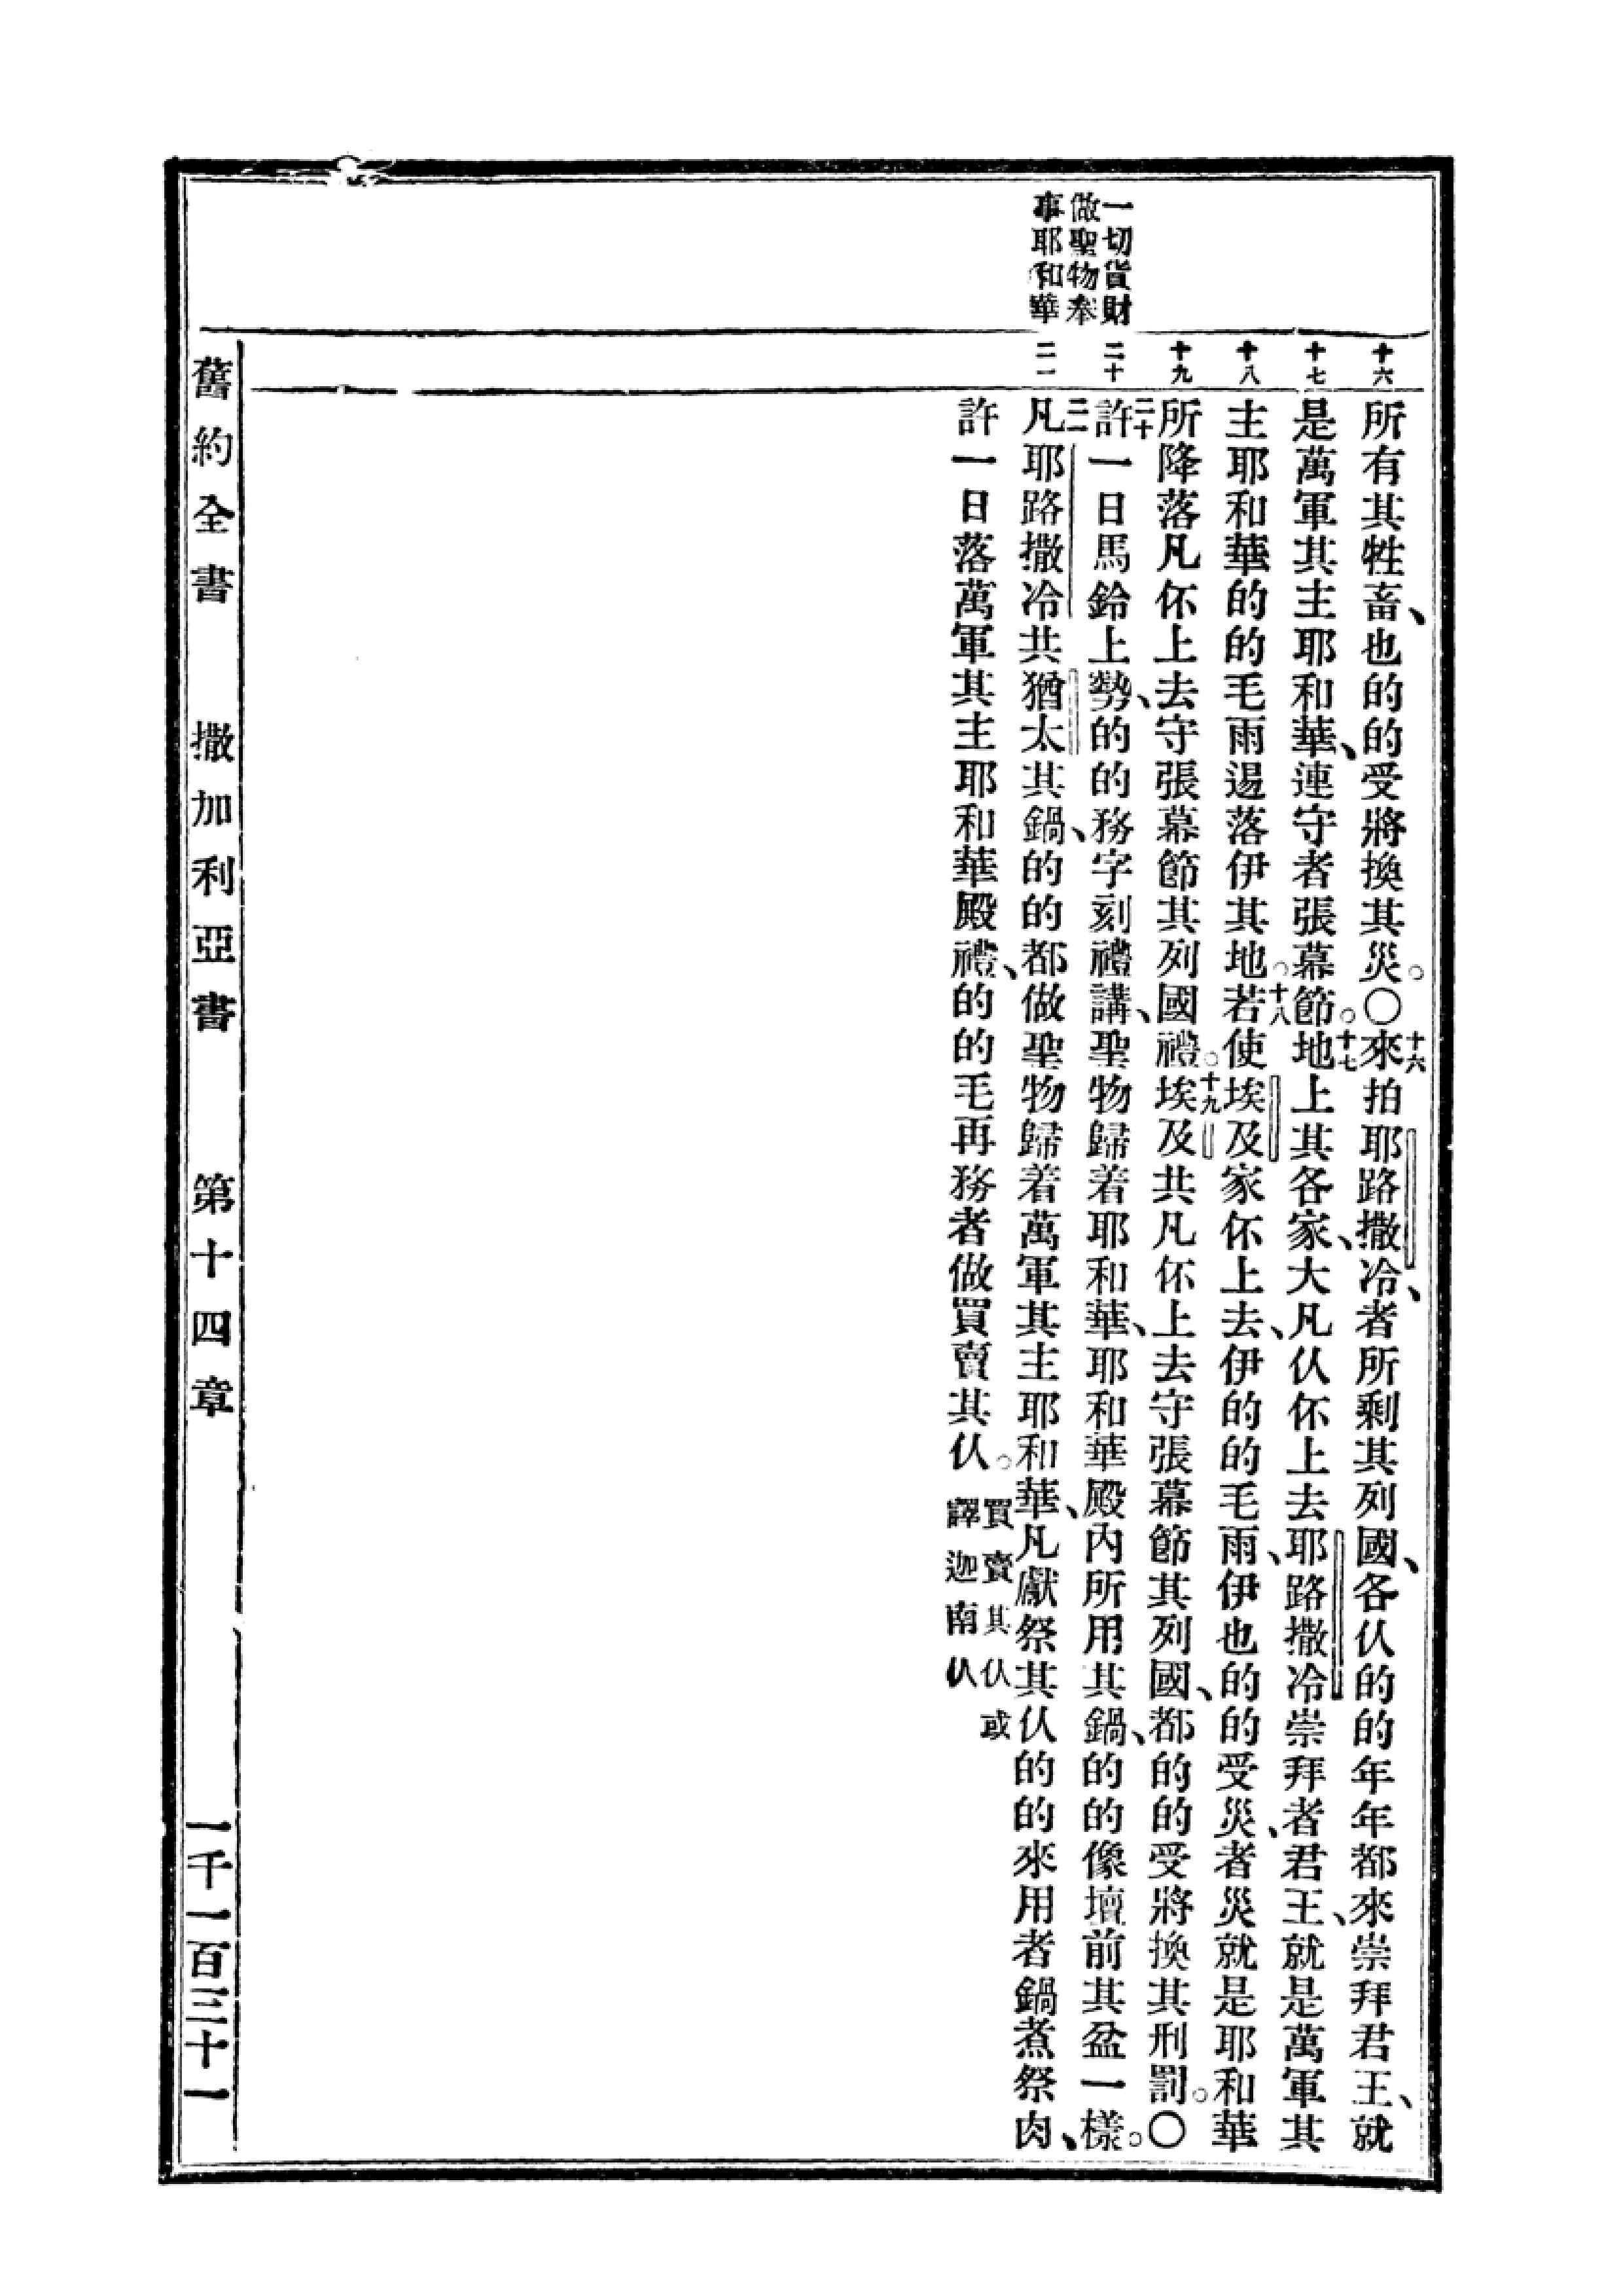 一切貨財
做聖物奉
事耶和華
十六
十七
十八
十九
二十
二一
所有其牲畜、也的的受將換其災。〇十六來拍耶路撒冷、者所剩其列國、各仈的的年年都來崇拜君王、就
是萬軍其主耶和華、連守者張幕節。十七地上其各家、大凡仈伓上去耶路撒冷崇拜者君王、就是萬軍其
主耶和華的的毛雨逿落伊其地。十八若使埃及家伓上去、伊的的毛雨、伊也的的受災、者災就是耶和華
所降落凡伓上去守張幕節其列國禮。十九埃及共凡伓上去守張幕節其列國、都的的受將換其刑罰。〇
二十許一日馬鈴上、勢的的務字刻禮講、聖物歸着耶和華、耶和華殿內所用其鍋、的的像壇前其盆一樣。
二一凡耶路撒冷共猶太其鍋、的的都做聖物歸着萬軍其主耶和華、凡獻祭其仈的的來用者鍋煮祭肉、
許一日落萬軍其主耶和華殿禮、的的毛再務者做買賣其仈。
買賣其仈或
譯迦南仈
舊約全書 撒加利亞書 第十四章 一千一百三十一